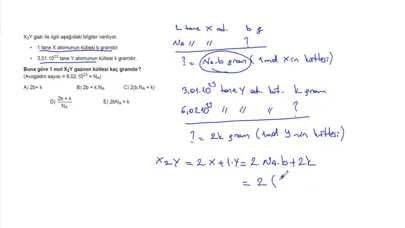 X₂Y gazı ile ilgili aşağıdaki bilgiler veriliyor.
• 1 tane X atomunun kütlesi b gramdır.
• 3,01.10²³ tane Y atomunun kütlesi k gramdır.
Buna göre 1 mol X₂Y gazının kütlesi kaç gramdır?
(Avogadro sayısı = 6,02.10²³ = Nₐ)
A) 2b+ k
B) 2b + k.Nₐ
C) 2(b.Nₐ + k)
D) 2b + k / Nₐ
E) 2bNₐ + k
1 tane X at. b g
Nₐ " " ?
? = Nₐ.b gram (1mol x'in kütlesi)
3,01.10²³ tane Y at. küt. k gram
6,02.10²³ " " " ?
? = 2k gram (1mol Y'nin kütlesi)
X₂Y = 2X + 1.Y = 2 Nₐ.b + 2k
= 2 (